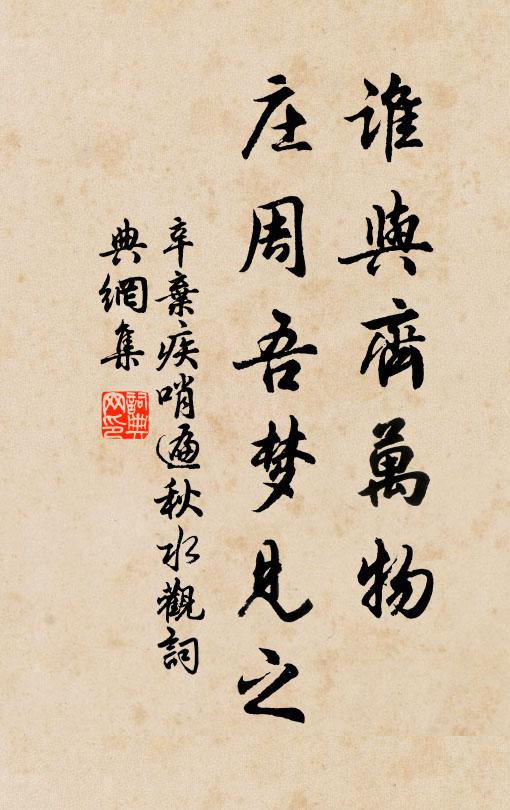 誰與齊萬物
庄周吾梦見之
辛棄疾哨遍秋水觀詞
典網集
詞典网印